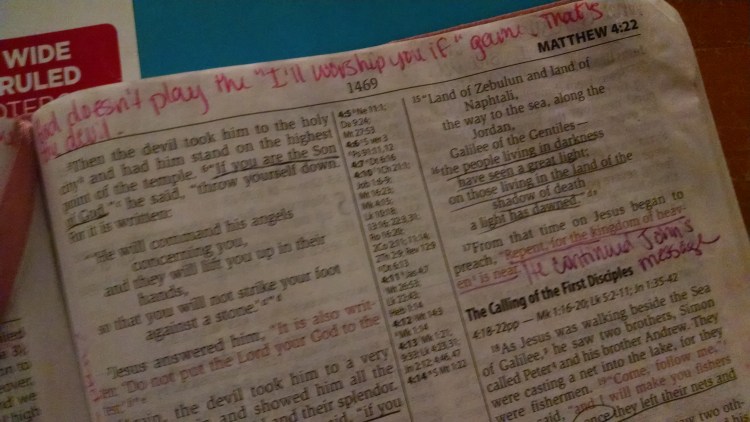 WIDE
RULED
God doesn't play the "I'll worship you if" game. That's
the devil.
1469
MATTHEW 4:22
⁵Then the devil took him to the holy
city and had him stand on the highest
point of the temple. ⁶"If you are the Son
of God," he said, "throw yourself down.
For it is written:
"'He will command his angels
concerning you,
and they will lift you up in their
hands,
so that you will not strike your foot
against a stone.'"
⁷Jesus answered him, "It is also writ-
ten: 'Do not put the Lord your God to the
the devil took him to a very
and showed him all the
and their splendor.
said, "if you
4:5 Ne 11:1;
Da 9:24;
Mt 27:53
4:6 ver 3
Ps 91:11,12
4:7 Dt 6:16
4:10 1Ch 21:1;
Job 1:6-9;
Mt 16:23;
Mk 4:15;
Lk 10:18;
13:16; 22:3,31;
Ro 16:20;
2Co 2:11; 11:14;
2Th 2:9; Rev 12:9
Dt 6:13
Mt 26:53;
Lk 22:43;
Heb 1:14
4:12 Mt 14:3
Mk 1:14
4:13 Mk 1:21;
9:33; Lk 4:23,31;
Jn 2:12; 4:46,47
¹⁵"Land of Zebulun and land of
Naphtali,
the way to the sea, along the
Jordan,
Galilee of the Gentiles—
¹⁶the people living in darkness
have seen a great light;
on those living in the land of the
shadow of death
a light has dawned."
¹⁷From that time on Jesus began to
preach, "Repent, for the kingdom of heav-
en is near." He continued John's
message
The Calling of the First Disciples
4:18-22pp — Mk 1:16-20; Lk 5:2-11; Jn 1:35-42
¹⁸As Jesus was walking beside the Sea
of Galilee, he saw two brothers, Simon
called Peter and his brother Andrew. They
were casting a net into the lake, for they
were fishermen. ¹⁹"Come, follow me,"
said, "and I will make you fishers
once they left their nets and